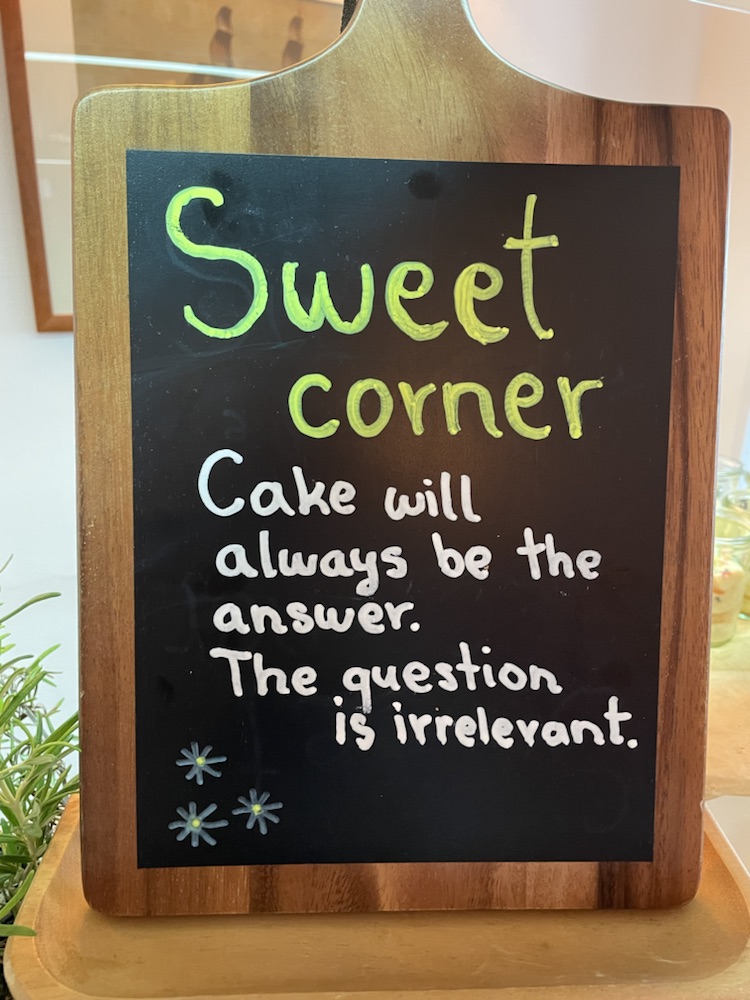 Sweet
corner
Cake will
always be the
answer.
The question
is irrelevant.